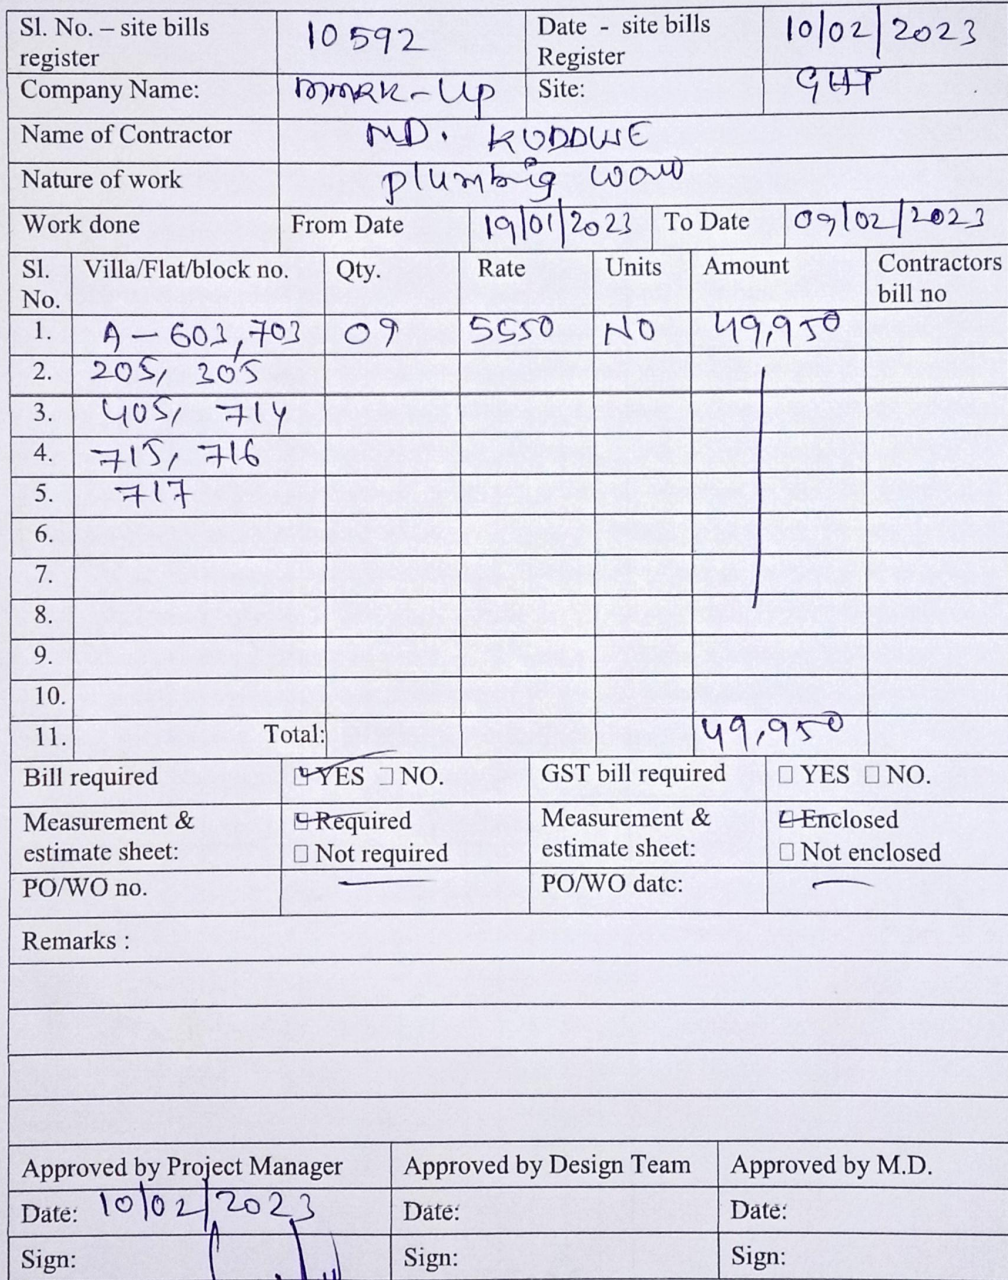 Sl. No. – site bills register 10592 Date - site bills Register 10/02/2023
Company Name: MMRK-Up Site: GHT
Name of Contractor MD. KUDDUE
Nature of work plumbig
Work done From Date 19/01/2023 To Date 09/02/2023
Sl. No. Villa/Flat/block no. Qty. Rate Units Amount Contractors bill no
1. A - 603,703 09 5550 NO 49,950
2. 205, 305
3. 405, 714
4. 715, 716
5. 717
6.
7.
8.
9.
10.
11. Total: 49,950
Bill required ☑ YES ☐ NO. GST bill required ☐ YES ☐ NO.
Measurement & estimate sheet: ☑ Required ☐ Not required Measurement & estimate sheet: ☑ Enclosed ☐ Not enclosed
PO/WO no. — PO/WO date: —
Remarks :
Approved by Project Manager Approved by Design Team Approved by M.D.
Date: 10/02/2023 Date: Date:
Sign: Sign: Sign: